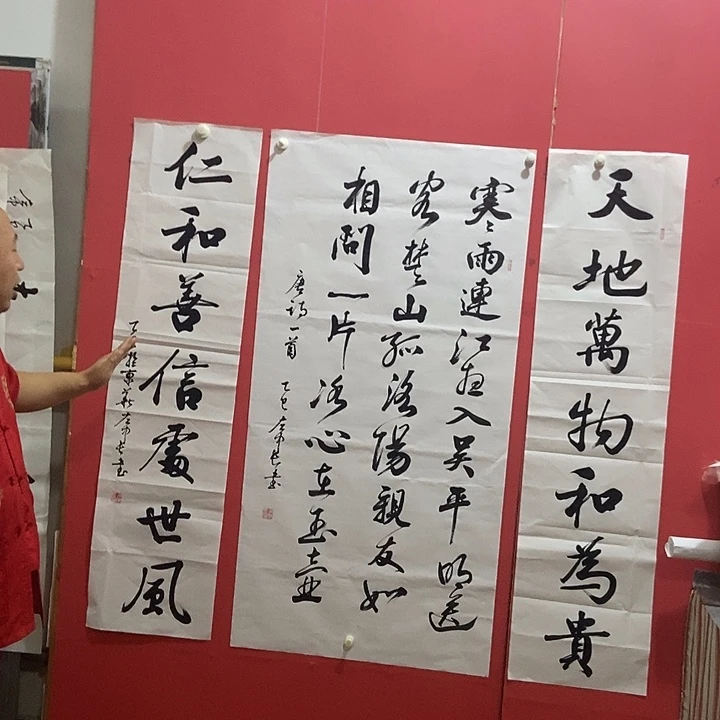 天地萬物和為貴
寒雨連江夜入吴平明送
客楚山孤洛陽親友如
相問一片冰心在玉壺
唐诗一首 乙巳
仁和善信處世風